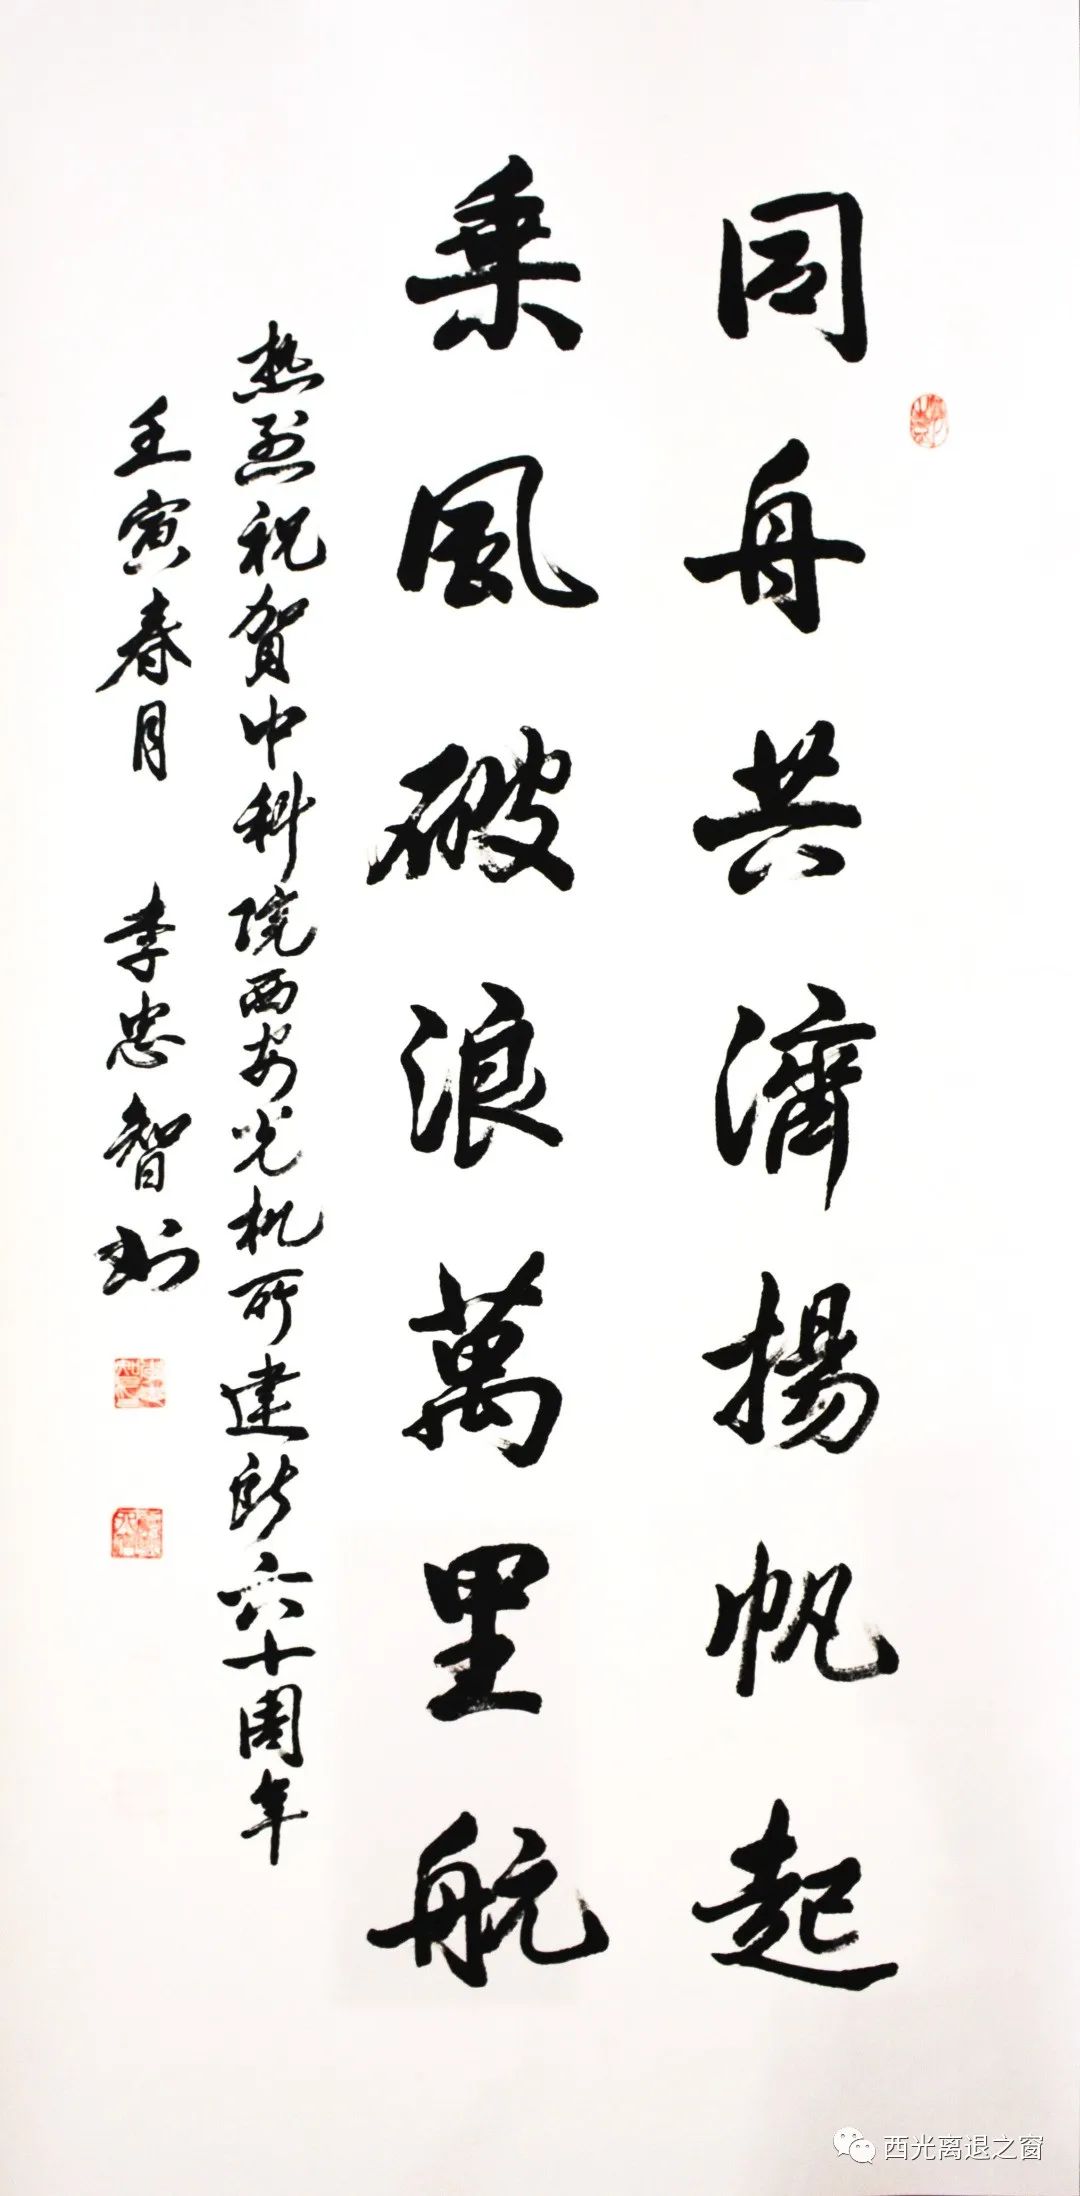 同舟共濟揚帆起
乗風破浪萬里航
热烈祝贺中科院西安光机所建所六十周年
壬寅春月 李忠智书
西光离退之窗